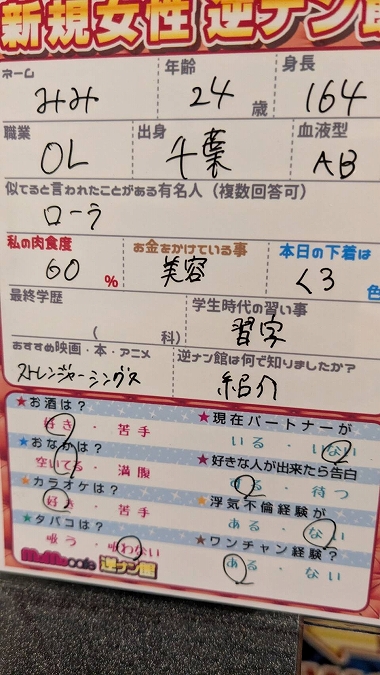 新規女性 逆ナン館
ネーム 年齢 身長
みみ 24 歳 164
職業 出身 血液型
OL 千葉 AB
似てると言われたことがある有名人（複数回答可）
ローラ
私の肉食度 お金をかけている事 本日の下着は
60 % 美容 くろ 色
最終学歴 学生時代の習い事
( 科) 習字
おすすめ映画・本・アニメ 逆ナン館は何で知りましたか？
ストレンジャーシングス 紹介
★お酒は？ ★現在パートナーが
好き・苦手 いる・いない
★おなかは？ ★好きな人が出来たら告白
空いてる・満腹 する・待つ
★カラオケは？ ★浮気不倫経験が
好き・苦手 ある・ない
★タバコは？ ★ワンチャン経験？
吸う・吸わない ある・ない
MoMo cafe 逆ナン館